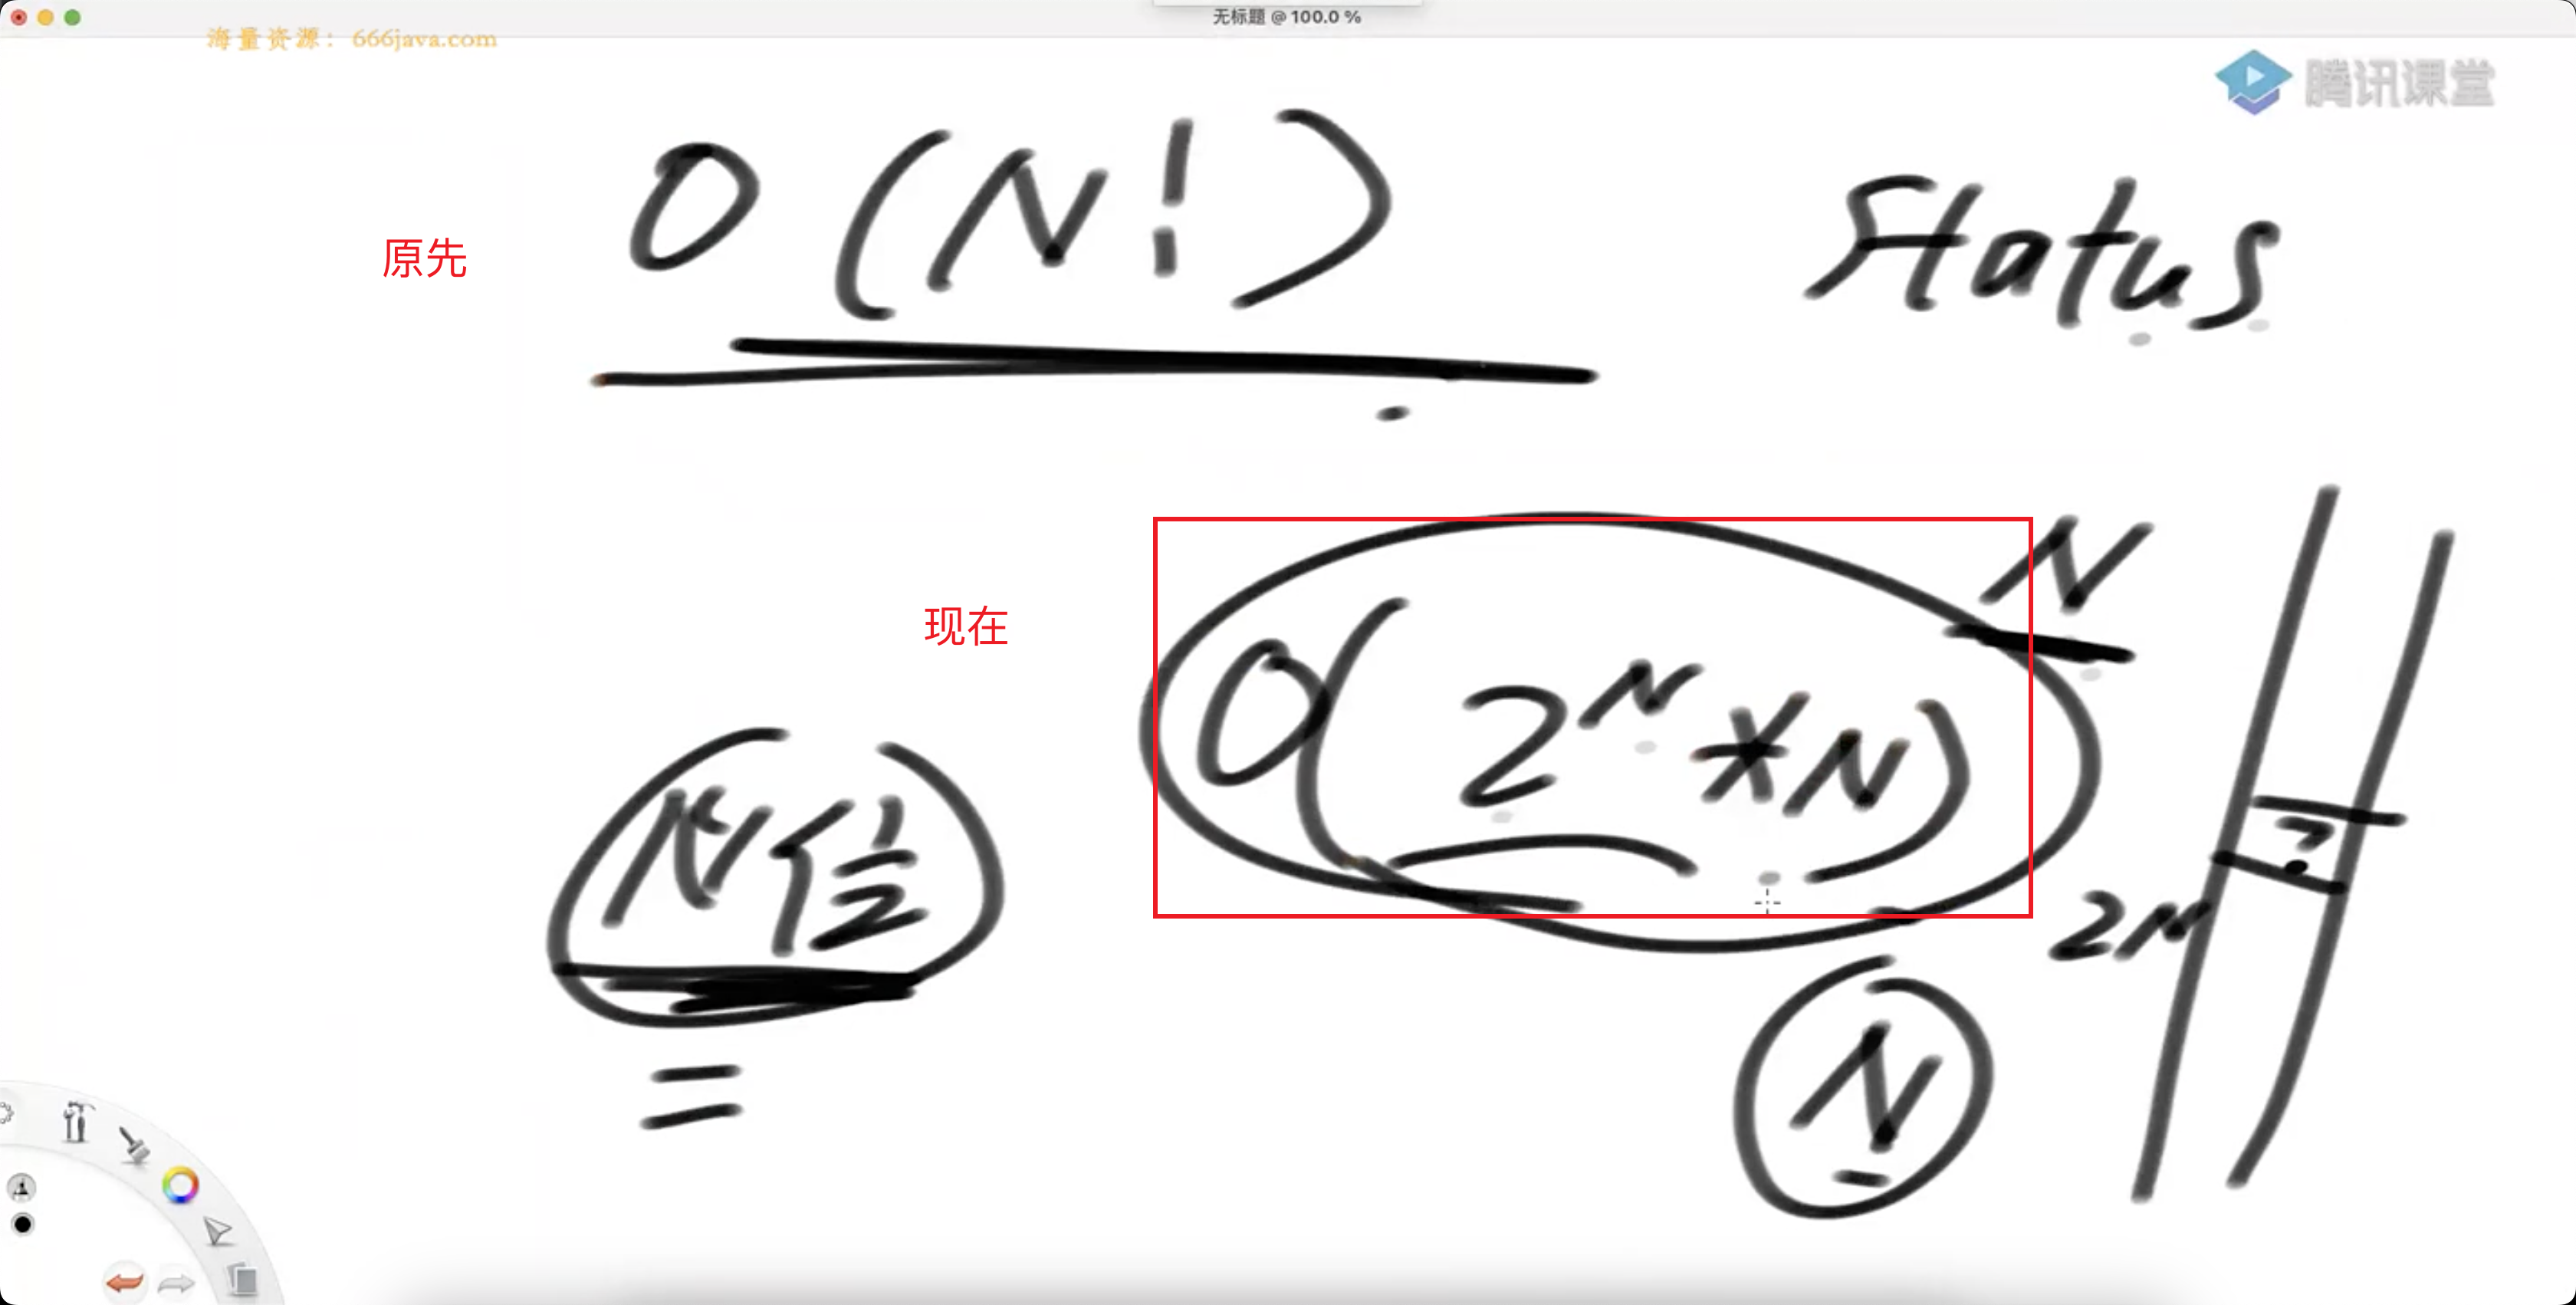 无标题 @ 100.0 %
海量资源：666java.com
腾讯课堂
原先
O(N!)
Status
现在
O(2^N*N)
N
N位
2^N
?
=
N